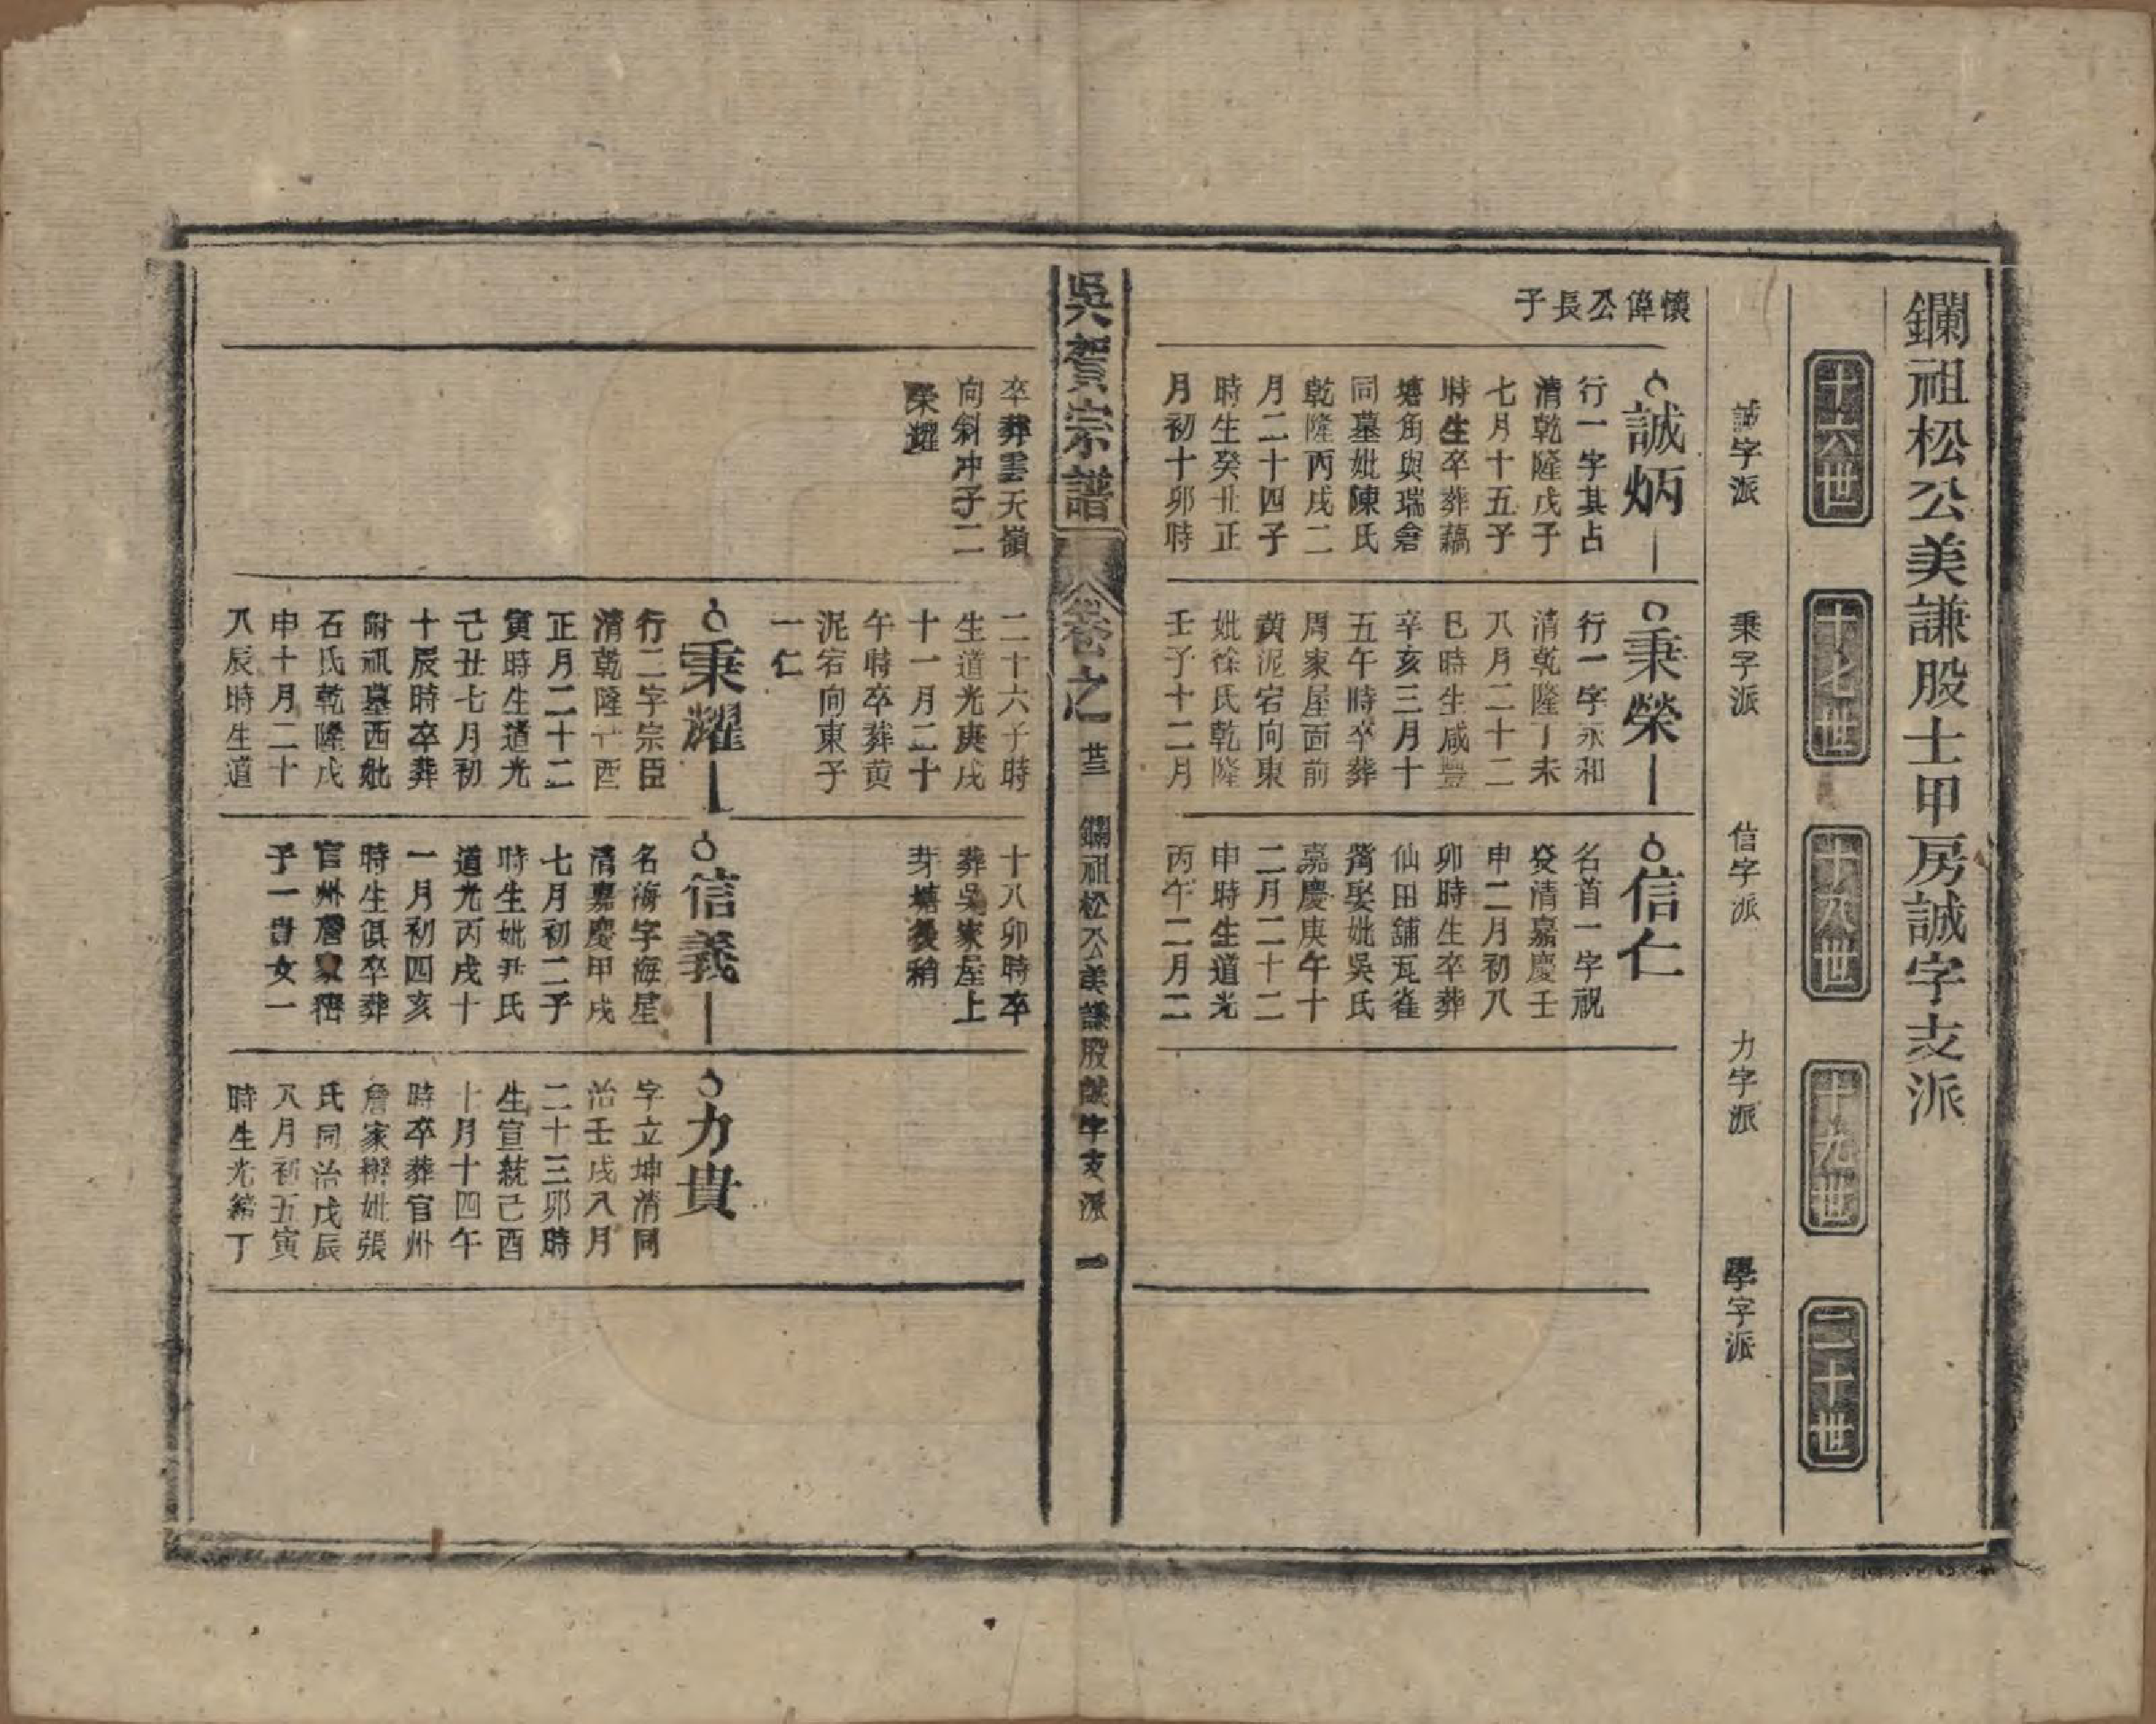 鑭祖松公美謙股士甲房誠字支派
十六世
十七世
十八世
十九世
二十世
誠字派
秉字派
信字派
力字派
學字派
懷偉公長子
誠炳
行一字其占
清乾隆戊子
七月十五子
時生卒葬藕
塘角與瑞倉
同墓妣陳氏
乾隆丙戌二
月二十四子
時生癸丑正
月初十卯時
秉榮
行一字永和
清乾隆丁未
八月二十二
巳時生咸豐
辛亥三月十
五午時卒葬
周家屋面前
黃泥宕向東
妣徐氏乾隆
壬子十二月
信仁
名首一字視
發清嘉慶壬
申二月初八
卯時生卒葬
仙田舖瓦雀
嘴娶妣吳氏
嘉慶庚午十
二月二十二
申時生道光
丙午二月二
吳賀宗譜
卷之一
廿三
鑭祖松公美謙股誠字支派
一
卒葬雲天嶺
向斜冲子二
榮耀
二十六子時
生道光庚戌
十一月二十
午時卒葬黄
泥宕向東子
一仁
秉耀
行二字宗臣
清乾隆乙酉
正月二十二
寅時生道光
己丑七月初
十辰時卒葬
附祖墓西妣
石氏乾隆戊
申十月二十
八辰時生道
十八卯時卒
葬吳家屋上
芽塘後稍
信義
名海字海星
清嘉慶甲戌
七月初二子
時生妣尹氏
道光丙戌十
一月初四亥
時生俱卒葬
官州詹家
子一貴女一
力貴
字立坤清同
治壬戌八月
二十三卯時
生宣統己酉
十月十四午
時卒葬官州
詹家妣張
氏同治戊辰
八月初五寅
時生光緒丁